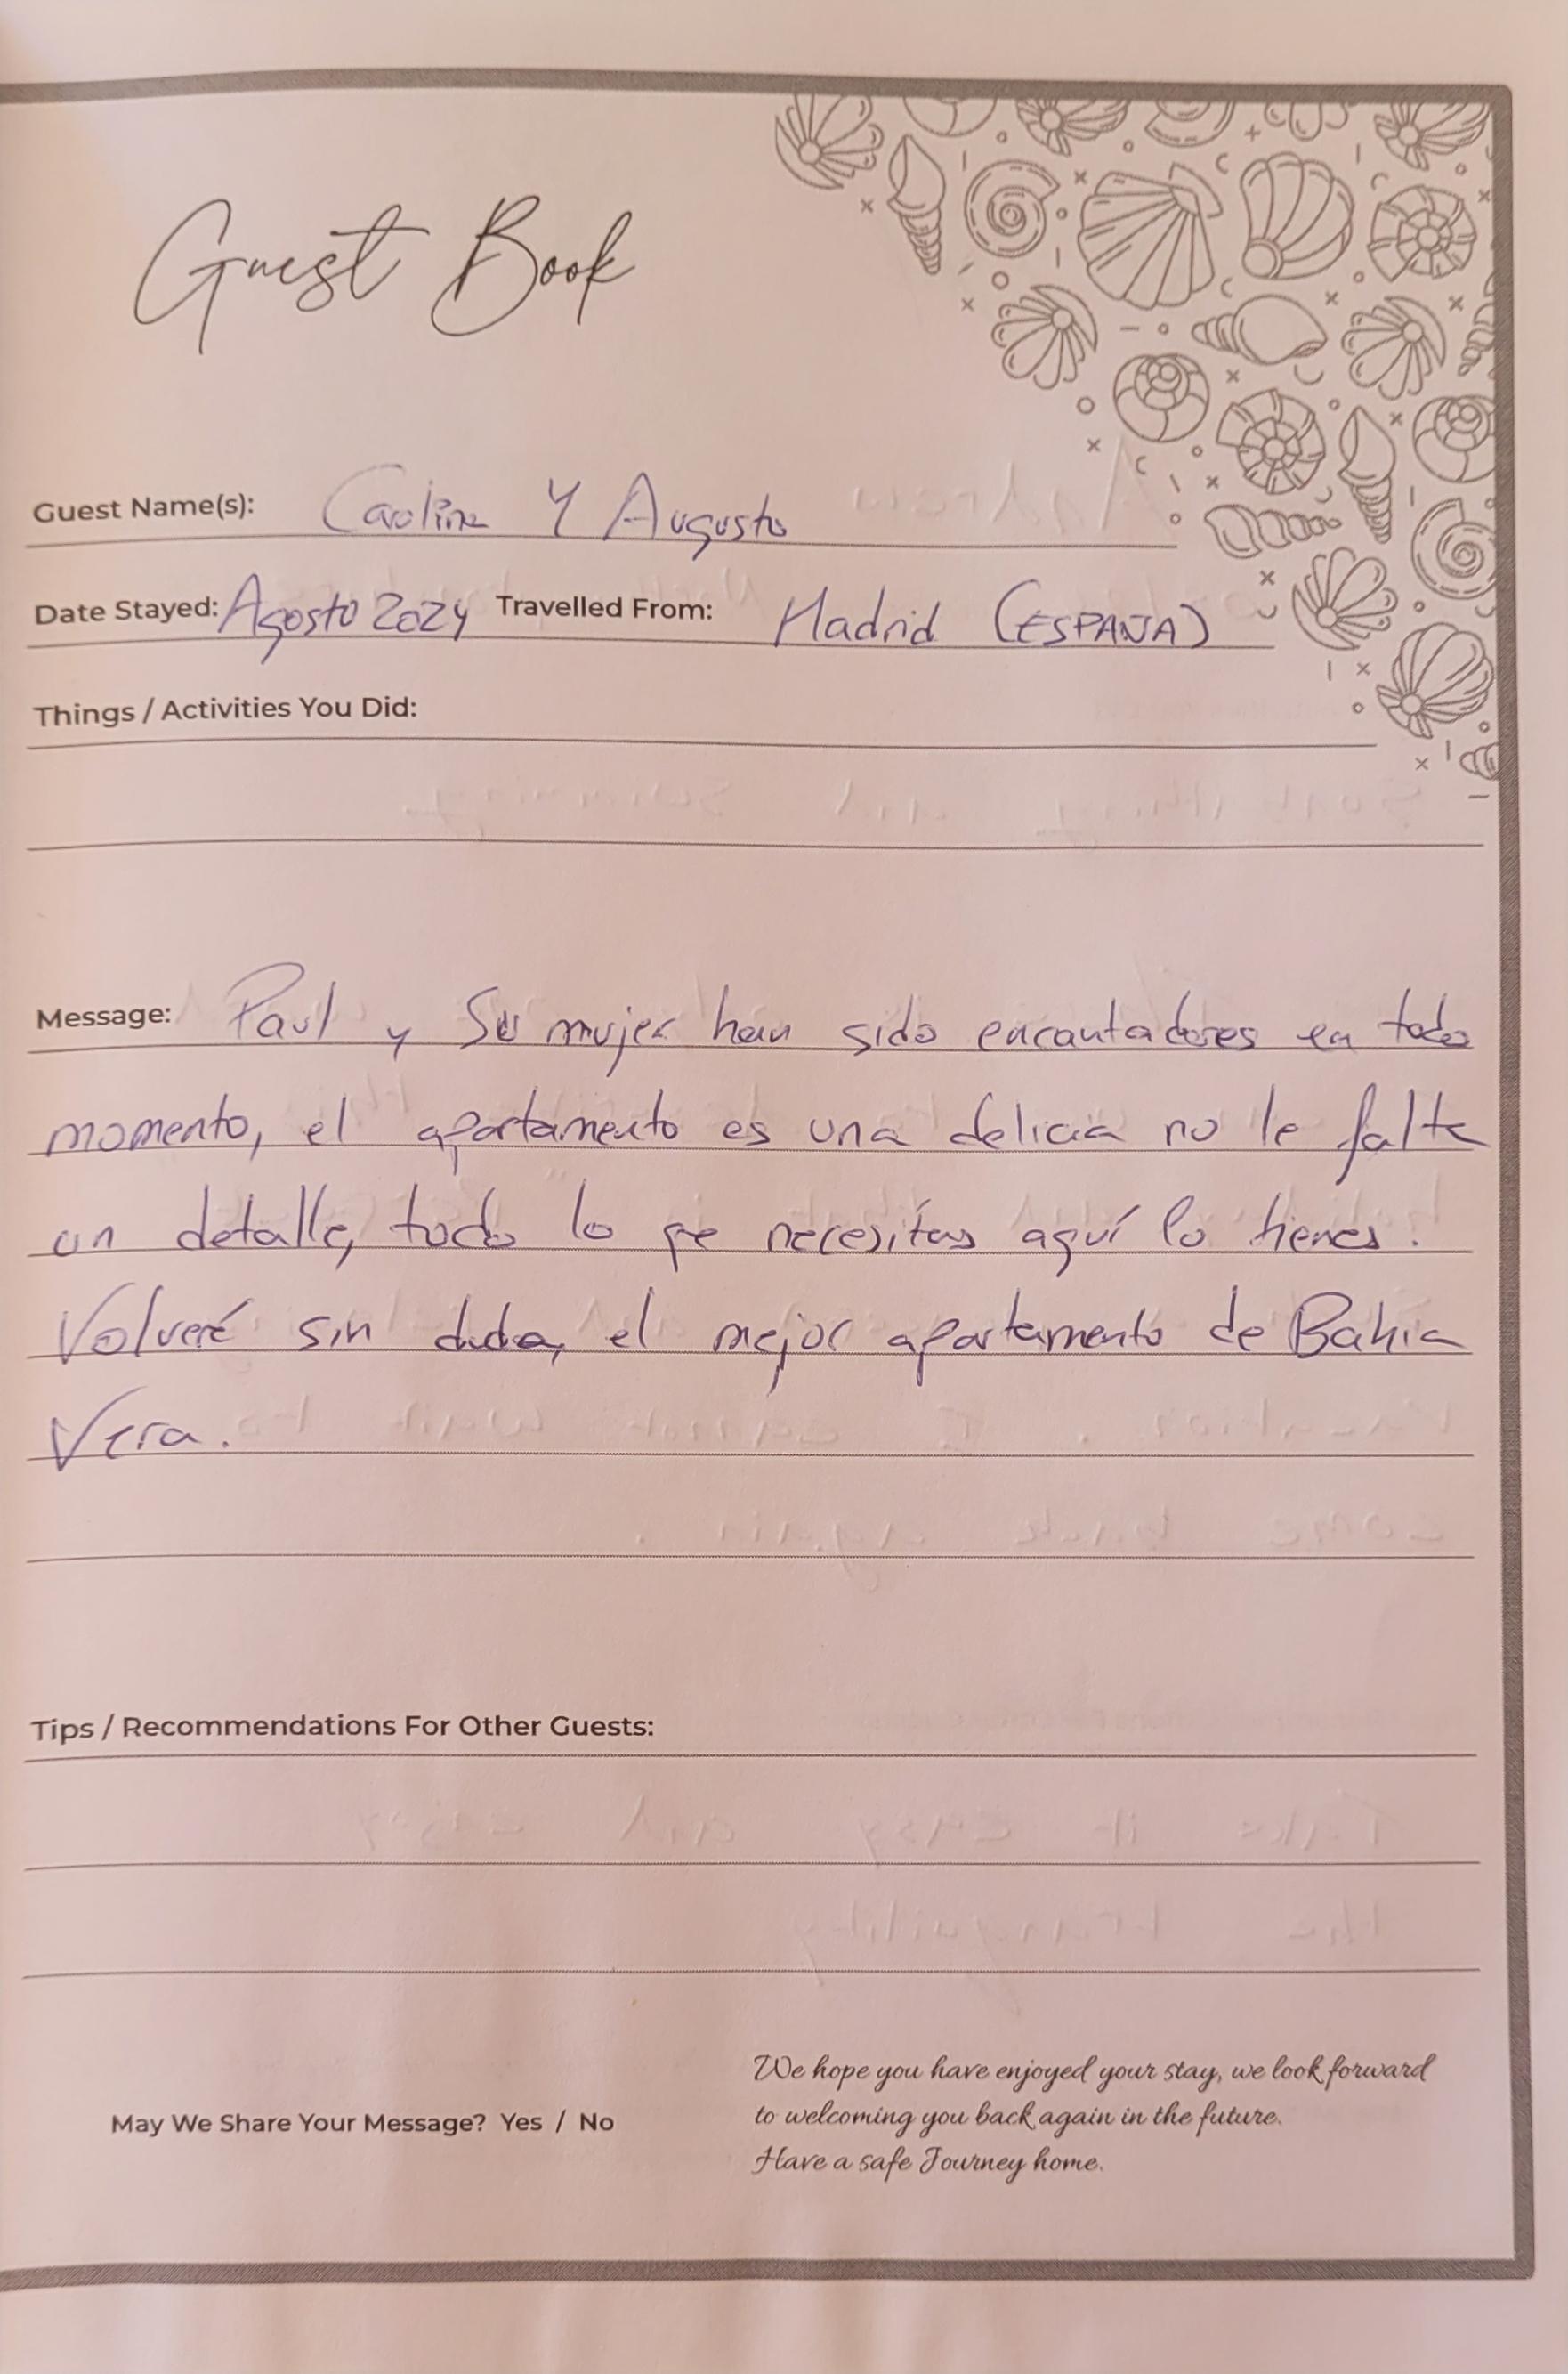 Guest Book
Guest Name(s): Carolina Y Augusto
Date Stayed: Agosto 2024 Travelled From: Madrid (ESPAÑA)
Things / Activities You Did:
Message: Paul y su mujer han sido encantadores en todo
momento, el apartamento es una delicia no le falta
un detalle, todo lo qe necesitas aquí lo tienes.
Volveré sin duda, el mejor apartamento de Bahia
Vera.
Tips / Recommendations For Other Guests:
May We Share Your Message? Yes / No
We hope you have enjoyed your stay, we look forward
to welcoming you back again in the future.
Have a safe Journey home.